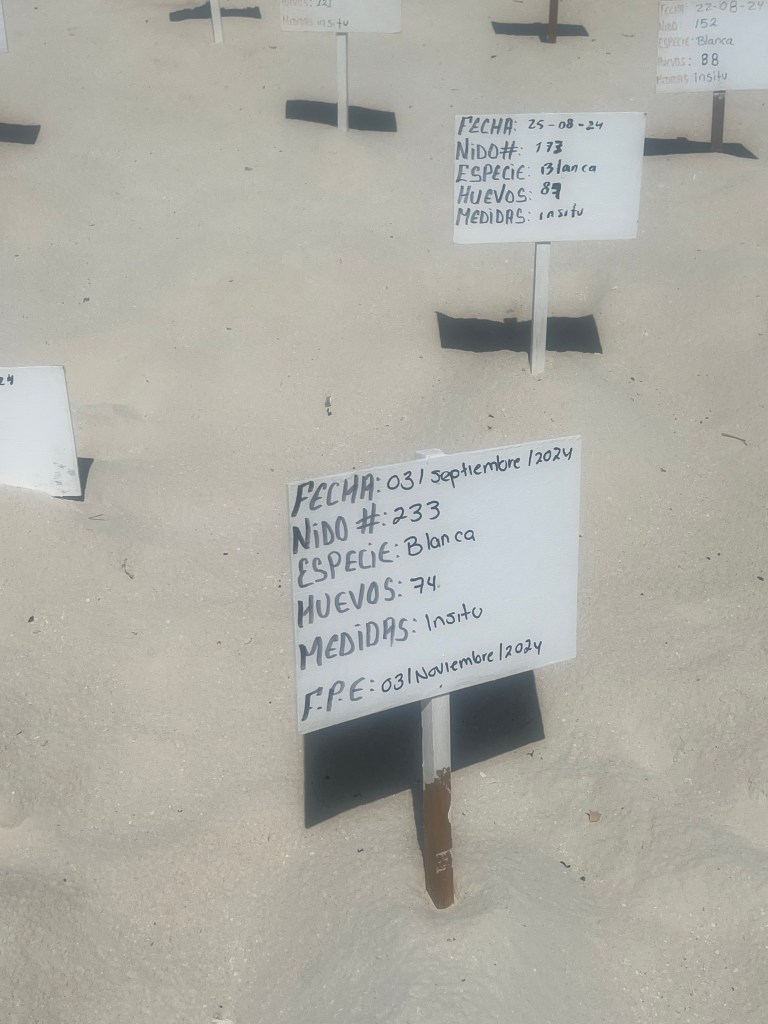 HUEVOS: 121
Medidas insitu
FECHA: 22-08-24
NIDO 152
ESPECIE: Blanca
Huevos: 88
Medidas: insitu
FECHA: 25-08-24
NIDO#: 173
ESPECIE: Blanca
HUEVOS: 87
MEDIDAS: insitu
24
FECHA: 03/Septiembre/2024
NIDO #: 233
ESPECIE: Blanca
HUEVOS: 74
MEDIDAS: Insitu
F.P.E: 03/Noviembre/2024